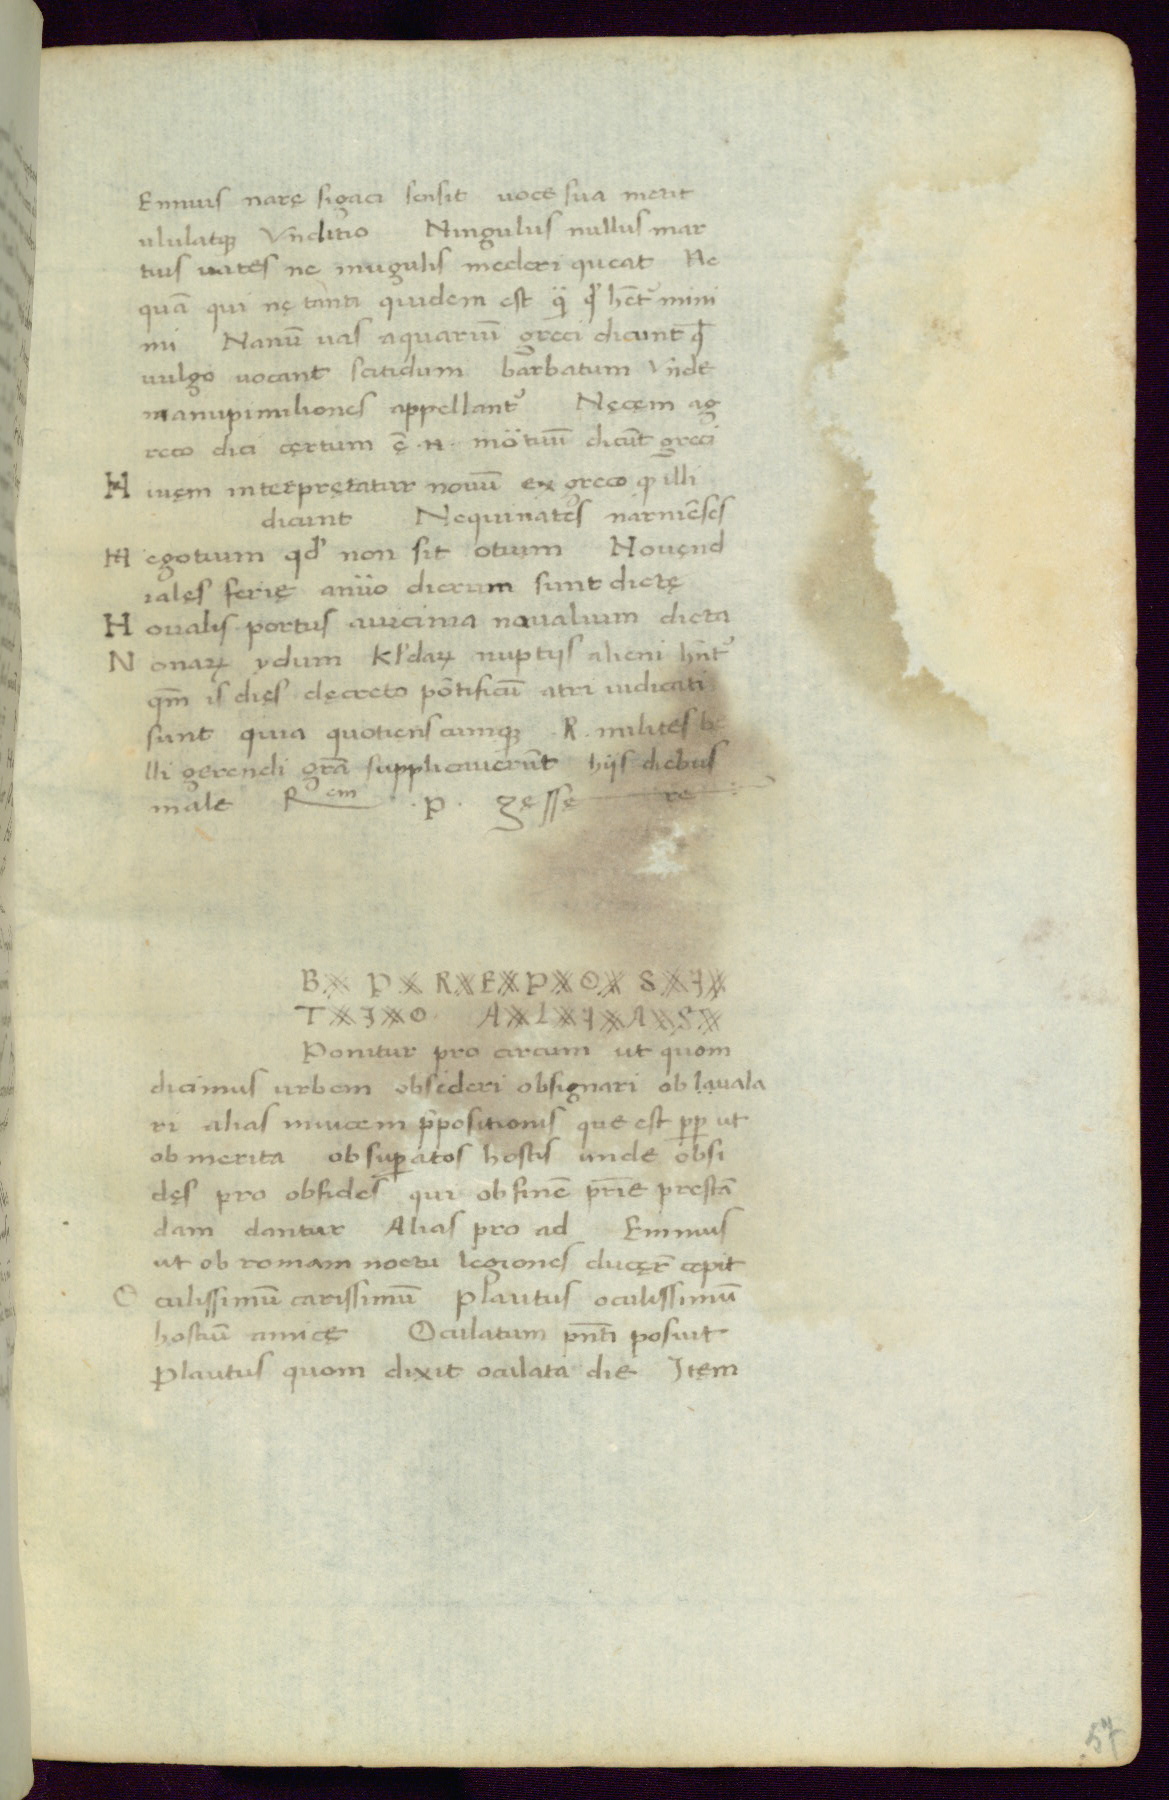 Ennius narę sigaci sensit uocē sua metit
ululatq; Vn̄ditio Ningulus nullus mar
tius uates ne mugulis mederi queat Ne
quā qui nę tanti quidem est q̈ qd' hēt' mini
mi Nanū uas aquariū greci dicunt qd
uulgo uocant scitidum barbatum Vn̄de
manupimiliones appellant' Nęcęm ag
reco dici cęrtum ē n mötuū dicūt greci
N iuęm interpretatur nouū ex greco qđ illi
dicunt Nequinates narniēses
N egotium qd' non sit otium Nouęnd
ialęs ferię anüo dierum sunt dictę
N oualis portus auicinia noualium dicta
N onaꝝ ydum Kl'daꝝ nuptijs alieni hn̄t'
qm̄ is dięs decreto pōtificū atri iudicati
sunt quia quotienscumq; .R. milites be
lli gerendi grā supplicauerūt hijs diebus
male Rem .p. gesse re
B. P R E P O S I
T I O A L I A S
Ponitur pro circum ut quom
dicimus urbem obsideri obsignari oblauala
ri alias in uicem p̄positionis que est ꝓp ut
ob merita obsuꝑatos hostis unde obsi
dęs pro obfides qui ob finē pr̄ie prestā
dam dantur Alias pro ad Ennius
ut ob romam noctu legiones ducer̄ cępit
O culissimū carissimū Plautus oculissimū
hostiū amicę Oculatum pn̄ti posuit
Plautus quom dixit oculata die Itęm
57